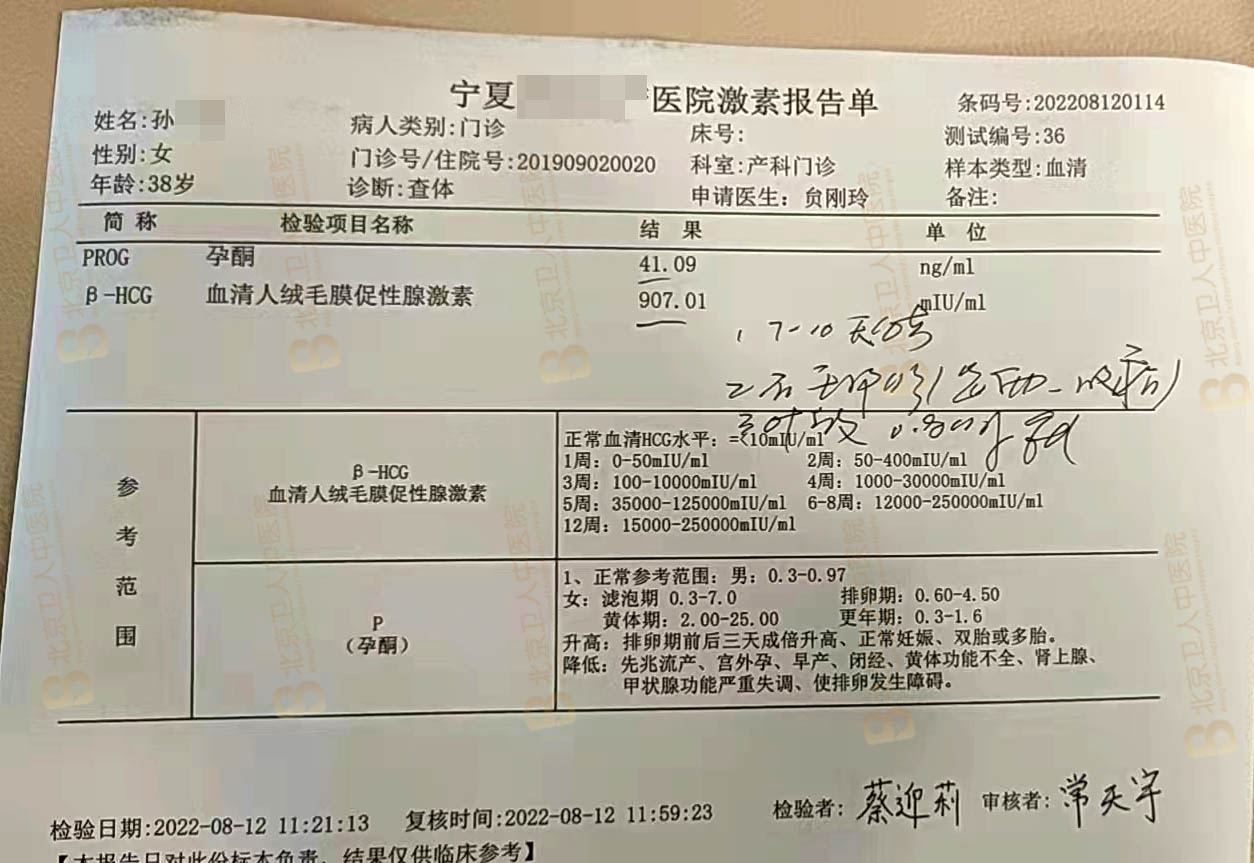 宁夏 医院激素报告单
条码号:202208120114
姓名:孙 病人类别:门诊 床号: 测试编号:36
性别:女 门诊号/住院号:201909020020 科室:产科门诊 样本类型:血清
年龄:38岁 诊断:查体 申请医生: 贠刚玲 备注:
简 称 检验项目名称 结 果 单 位
PROG 孕酮 41.09 ng/ml
β-HCG 血清人绒毛膜促性腺激素 907.01 mIU/ml
1, 7-10天
参考范围
β-HCG
血清人绒毛膜促性腺激素
正常血清HCG水平: =<10mIU/ml
1周: 0-50mIU/ml 2周: 50-400mIU/ml
3周: 100-10000mIU/ml 4周: 1000-30000mIU/ml
5周: 35000-125000mIU/ml 6-8周: 12000-250000mIU/ml
12周: 15000-250000mIU/ml
P
(孕酮)
1、正常参考范围: 男: 0.3-0.97
女: 滤泡期 0.3-7.0 排卵期: 0.60-4.50
黄体期: 2.00-25.00 更年期: 0.3-1.6
升高: 排卵期前后三天成倍升高、正常妊娠、双胎或多胎。
降低: 先兆流产、宫外孕、早产、闭经、黄体功能不全、肾上腺、
甲状腺功能严重失调、使排卵发生障碍。
检验日期:2022-08-12 11:21:13 复核时间:2022-08-12 11:59:23 检验者: 蔡迎莉 审核者: 常天宇
【本报告只对此份标本负责, 结果仅供临床参考】
北京卫人中医院